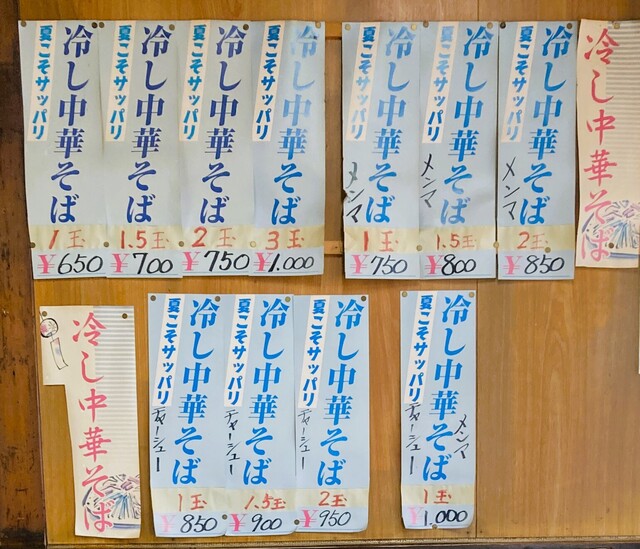 冷し中華そば
夏こそサッパリ
1玉
¥650
冷し中華そば
夏こそサッパリ
1.5玉
¥700
冷し中華そば
夏こそサッパリ
2玉
¥750
冷し中華そば
夏こそサッパリ
3玉
¥1.000
冷し中華そば
夏こそサッパリ
メンマ
1玉
¥750
冷し中華そば
夏こそサッパリ
メンマ
1.5玉
¥800
冷し中華そば
夏こそサッパリ
メンマ
2玉
¥850
冷し中華そば
冷し中華そば
冷し中華そば
夏こそサッパリ
チャーシュー
1玉
¥850
冷し中華そば
夏こそサッパリ
チャーシュー
1.5玉
¥900
冷し中華そば
夏こそサッパリ
チャーシュー
2玉
¥950
冷し中華そば
夏こそサッパリ
メンマ
チャーシュー
1玉
¥1.000